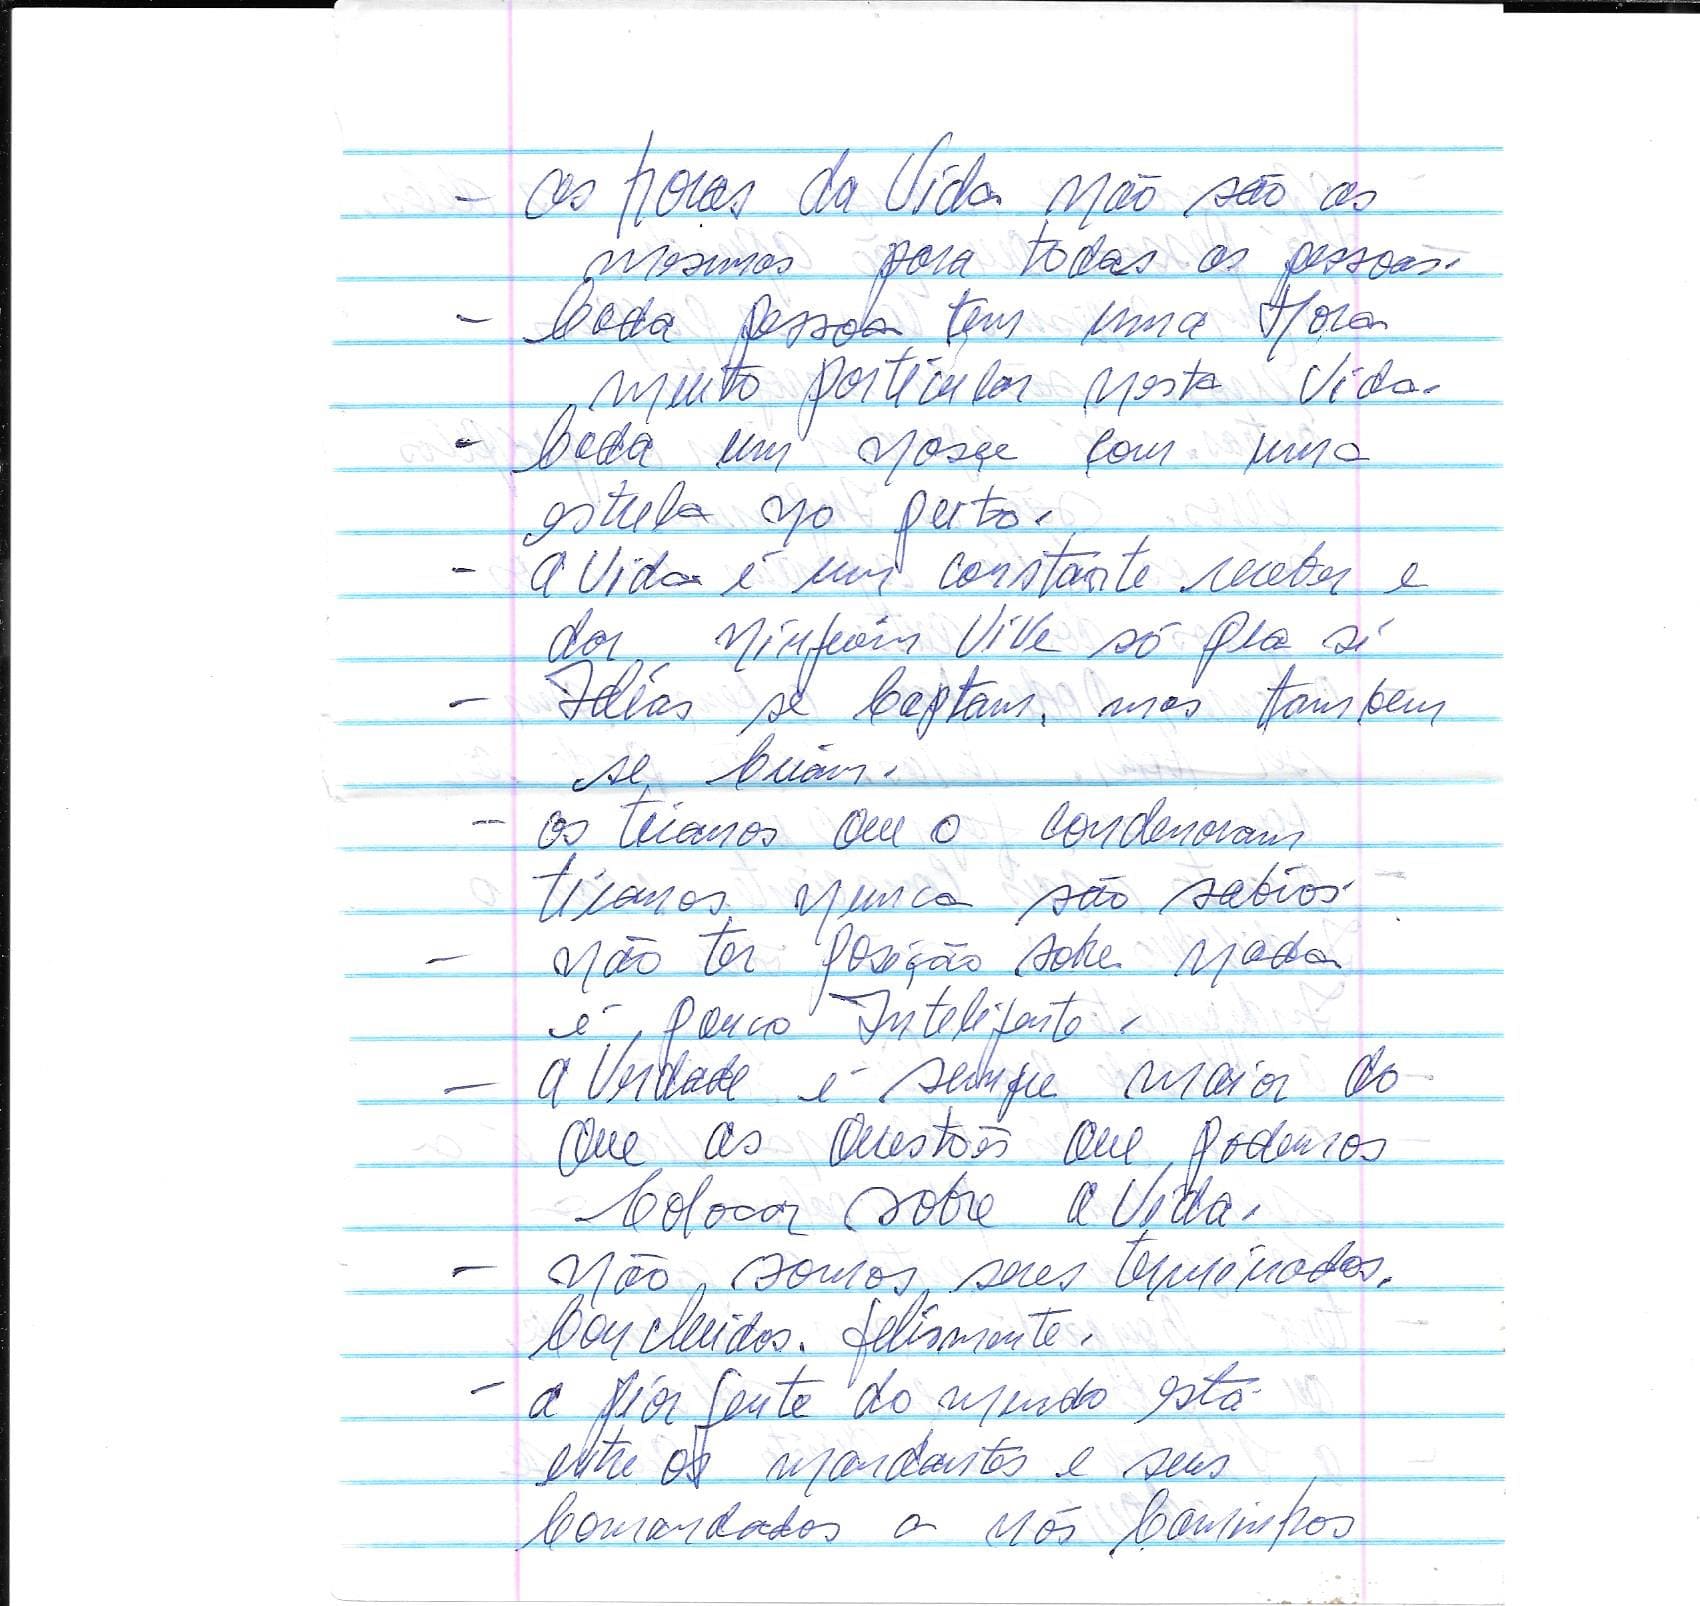 - as horas da Vida não são as
mesmas para todas as pessoas.
- Cada pessoa tem uma Hora
muito particular nesta Vida.
- Cada um nasçe com uma
estrela no peito.
- a Vida é um constante receber e
dar ninguém Vive só pra si
- Idéias se Captam. mas tambem
se Criam.
- os tiranos que o condenaram
tiranos nunca são sabios.
- não ter posição sobre nada
é pouco Inteligente.
- a Verdade é sempre maior do
que as questões que podemos
Colocar sobre a Vida.
- não somos seres terminados.
Concluidos. felismente.
- a pior gente do mundo está
entre os mandantes e seus
Comandados a nós Caminhos